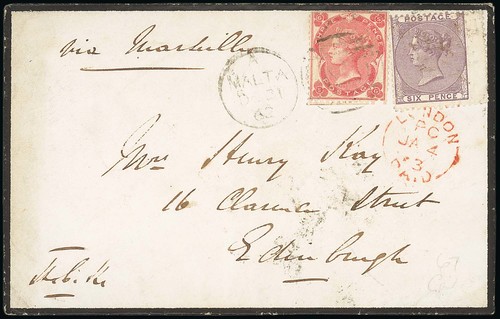 via Marseilles
THREE PENCE
POSTAGE
POSTAGE
SIX PENCE
A
MALTA
LONDON
PC
JA 4
63
PAID
Mrs Henry Kay
16 Clarence Street
Edinburgh